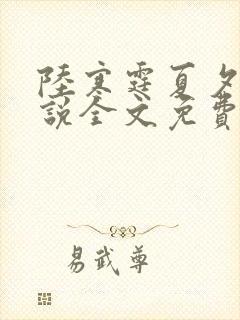 陸寒霆夏夕
說全文免費
易武尊